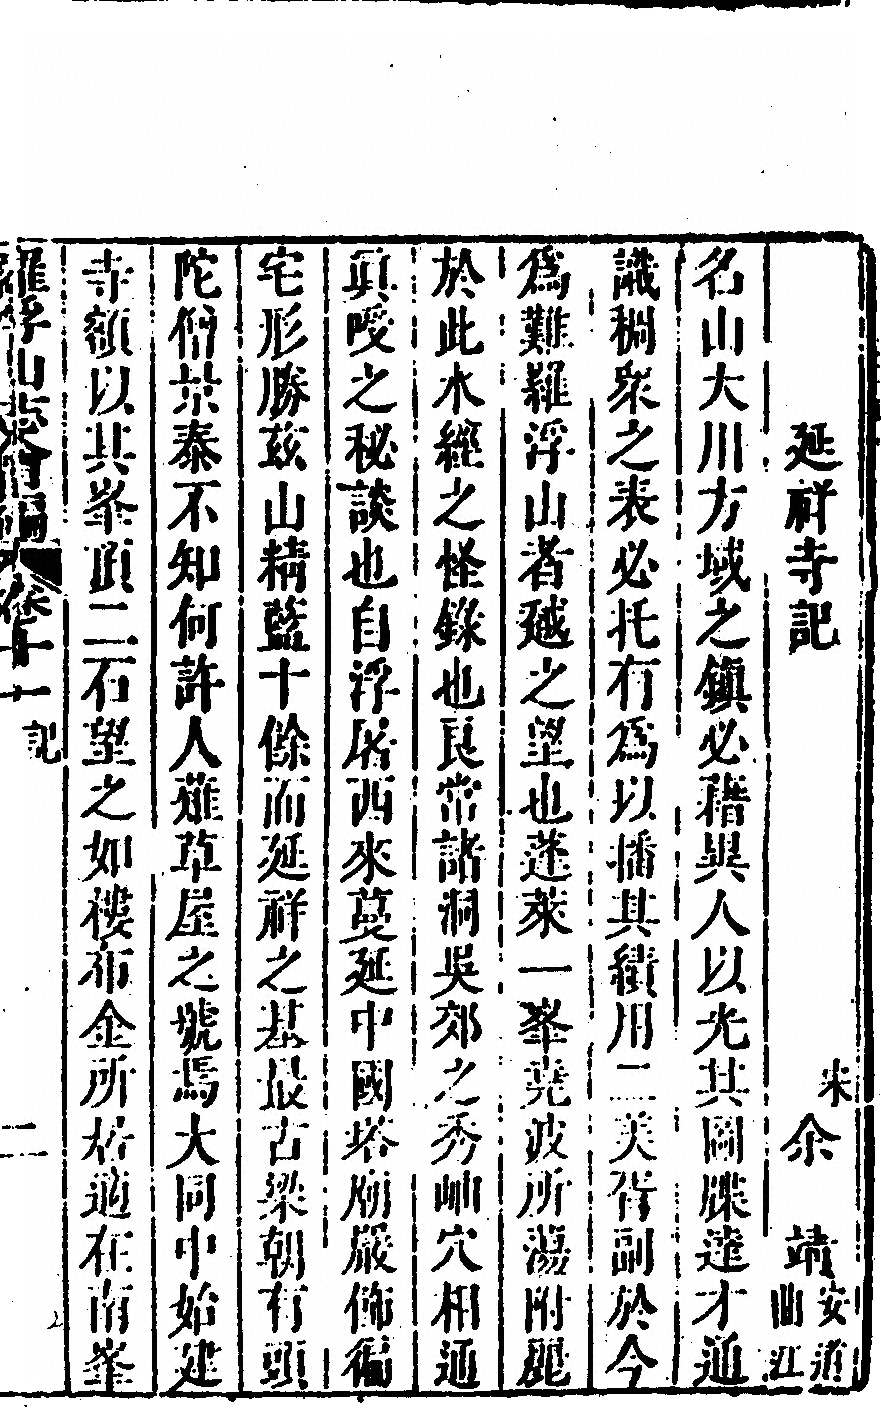 延祥寺記
宋余靖安道曲江
名山大川方域之鎮必藉異人以光其圖牒達才通
識稠眾之表必托有爲以播其績用二美胥副於今
爲難羅浮山者越之望也蓬萊一峯堯波所蕩附麗
於此水經之怪錄也良常諸洞吳郊之秀岫穴相通
眞嗳之秘談也自浮屠西來蔓延中國塔廟嚴佈徧
宅形勝茲山精藍十餘而延祥之基最古梁朝有頭
陀僧景泰不知何許人薙草屋之號焉大同中始建
寺額以其峯頂二石望之如樓布金所居適在南峯
羅浮山志會編 卷十一 記 二